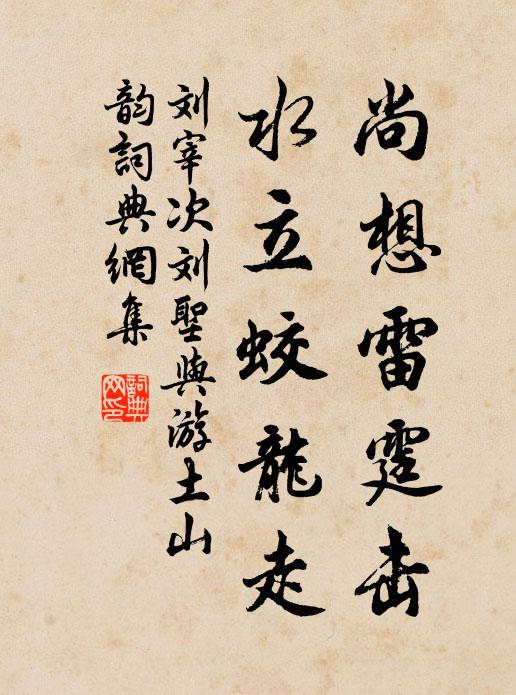 尚想雷霆击
水立蛟龍走
刘宰次刘聖與游土山
韵詞典網集
詞典
网印